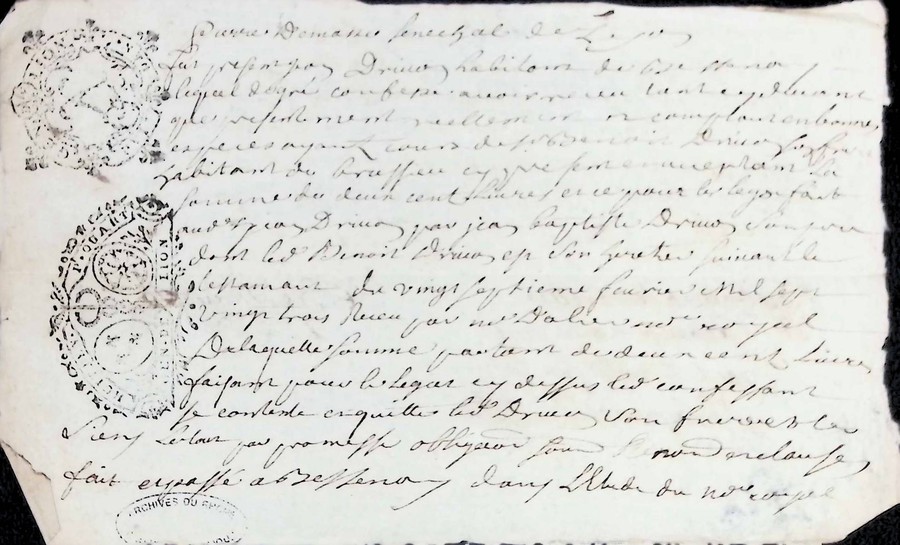 Pierre Demasso senechal de Lyon
fut present jean Drivon habitant de Bessenay
lequel de gré confesse avoir receu tant cy devant
que presentement reellement et comptant en bonnes
especes ayant cours de sr Benoit Drivon son frere
habitant du Brussieu cy present et acceptant La
somme du deux cent livres et ce pour le legat fait
aud. jean Drivon par jean baptiste Drivon son pere
dont led Benoit Drivon est son heritier suivant le
testamant du vingt septieme fevrier Mil sept
vingt trois Receu par me Dalier notre royal
De laquelle somme partant de deux cent livres
faisant pour le legat cy dessus led confessant
se contente en quitte led Drivon son frere et les
siens Le tout par promesse obligaon sour Renon et clauses
fait et passé a Bessenay dans L'Etude du nore royal
P. QUART
LION
ARCHIVES DU RHÔNE